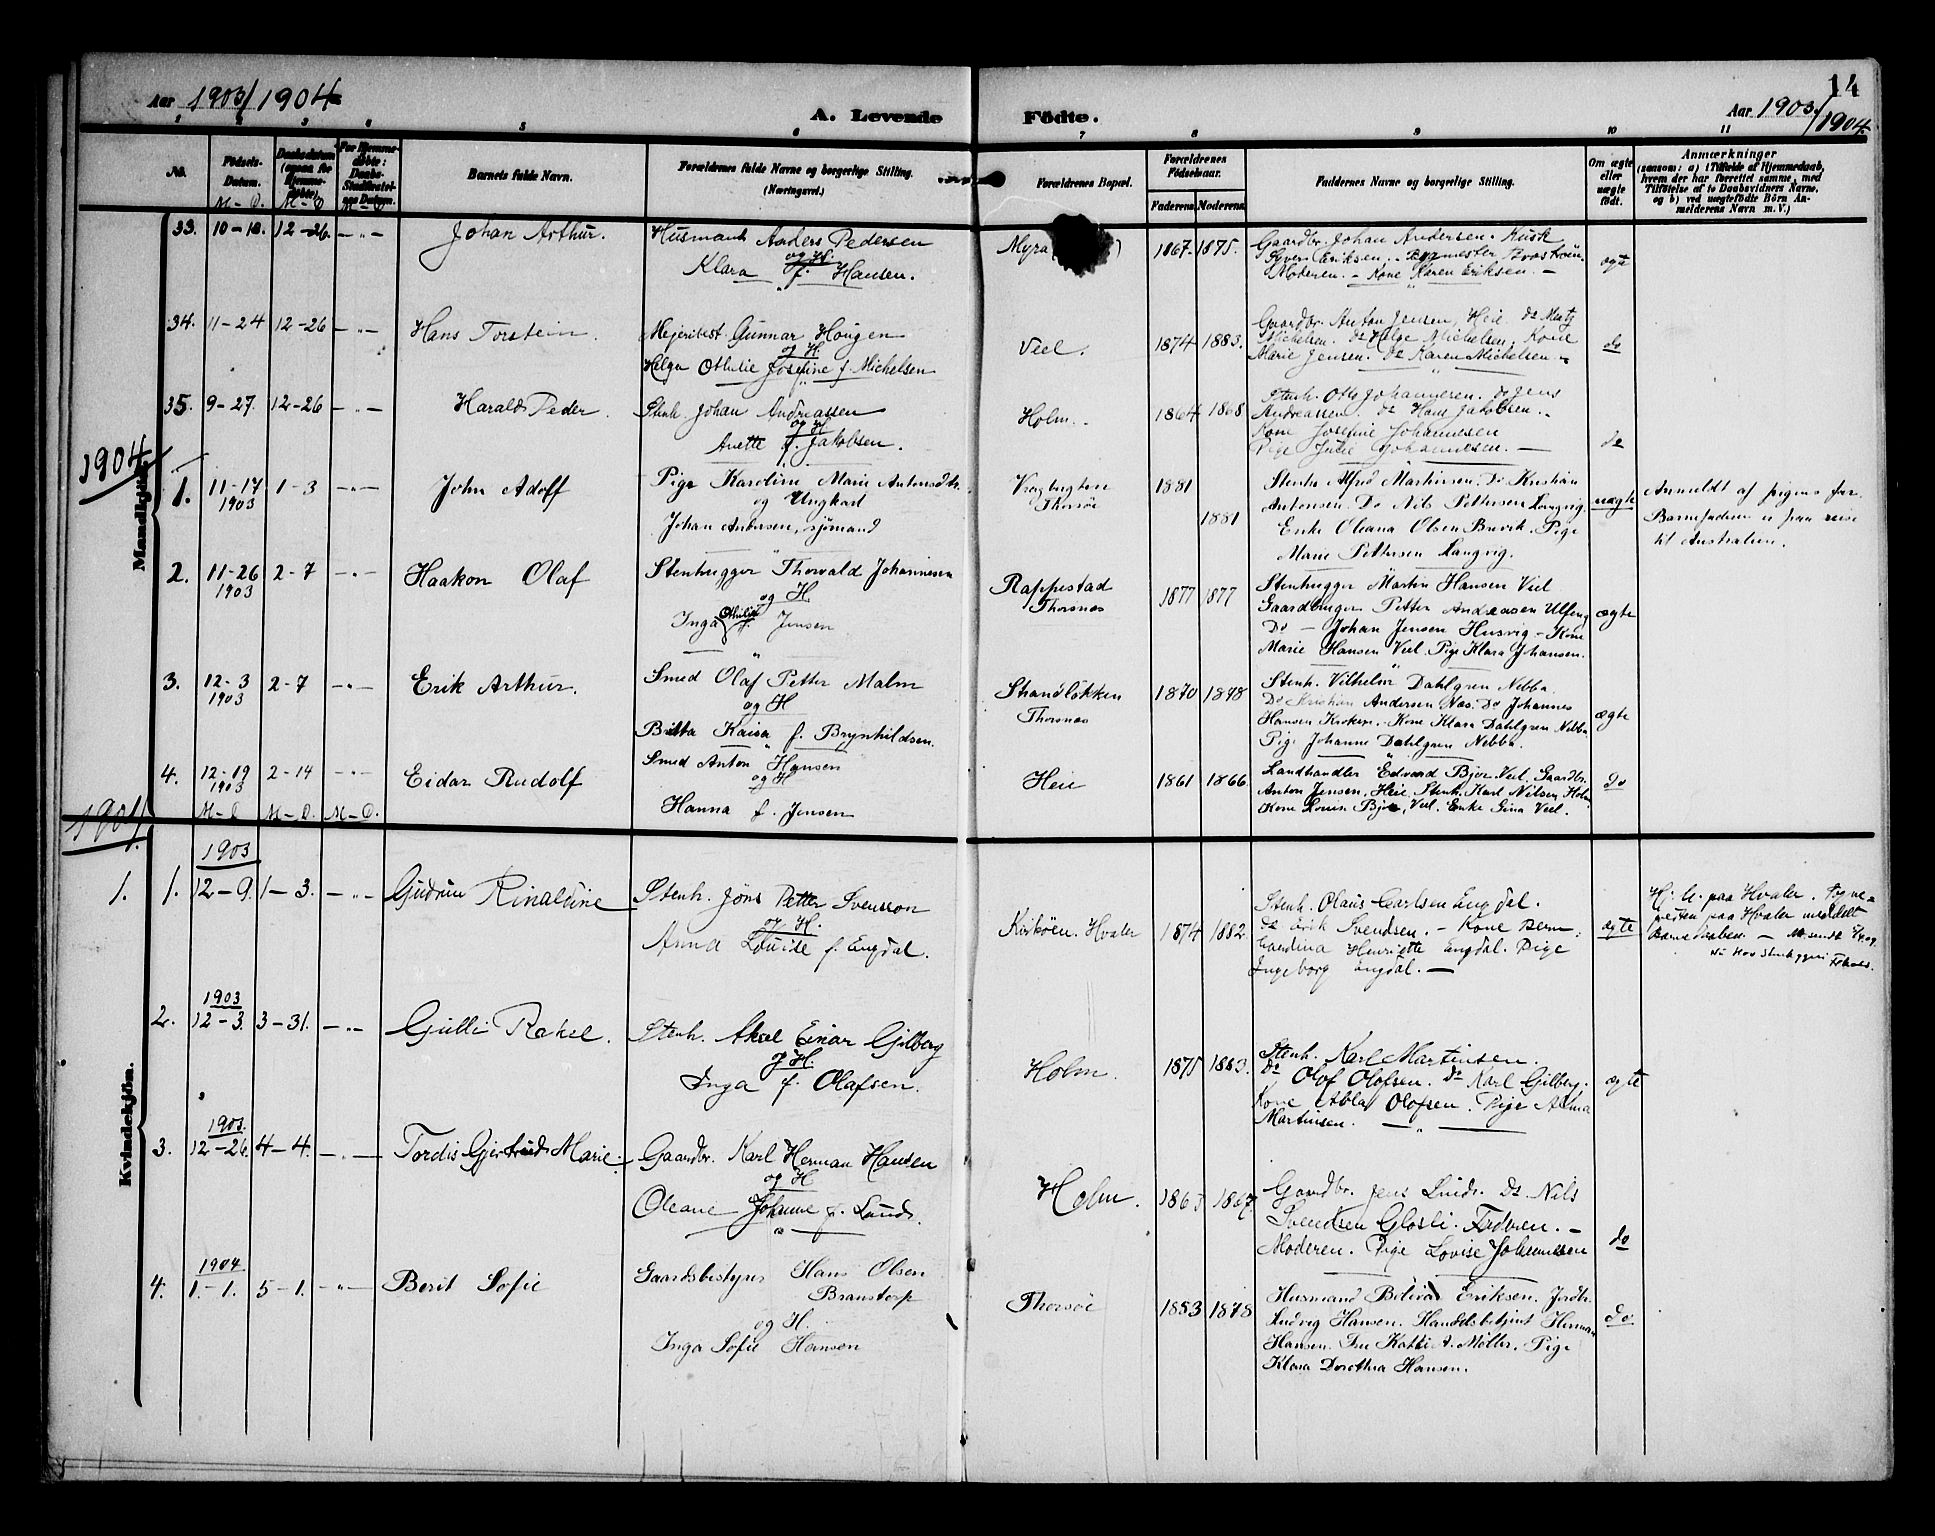 14
Aar 1903/1904
A. Levende Fødte.
Aar 1903/1904
1 2 3 4 5 6 7 8 9 10 11
No.
Fødsels-Datum.
Daabsdatum (ogsaa for Hjemmedøbte).
For Hjemmedøbte: Daabs-Stadfæstelsens Datum.
Barnets fulde Navn.
Forældrenes fulde Navne og borgerlige Stilling. (Næringsvei.)
Forældrenes Bopæl.
Forældrenes Fødselsaar.
Faderens Moderens
Faddernes Navne og borgerlige Stilling.
Om ægte eller uægte født.
Anmærkninger (saasom: a) i Tilfælde af Hjemmedaab, hvem der har forrettet samme, med Tilføielse af to Daabsvidners Navne, og b) ved uægtefødte Børn Anmelderens Navn m. V.)
M-D. M-D M-D.
33. 10-18. 12-26. -"- Johan Arthur.
Husmand Anders Pedersen
og H.
Klara f. Hansen.
Myra 1867. 1875.
Gaardbr. Johan Andersen. Kusk
Syver Eriksen.
Moderen. - Kone Karen Eriksen. -
ægte
34. 11-24 12-26 -"- Hans Torstein.
Mejeribest. Gunnar Hougen
og H.
Helga Othilie Josefine f. Michelsen
Veel. 1874 1883.
Gaardbr. Anton Jensen, Heie. Do Matz
Michelsen. Do Helge Michelsen, Kone
Marie Jensen. Do Karen Michelsen.
do
35. 9-27. 12-26 -"- Harald Peder.
Stenh. Johan Andreassen
og H
Anette f. Jakobsen.
Holm. 1864 1868.
Stenh. Otto Johannesen. Do Jens
Andreassen. Do Hans Jakobsen.
Kone Josefine Johannesen
Pige Julie Johannesen. -
do
1904.
Mandkjøn.
1. 11-17 1903 1-3 -"- John Adolf
Pige Karoline Marie Antonsdtr.
og Ungkarl
Johan Andersen, sjömand
Thorsöe 1881 1881
Stenh. Alfred Martinsen. Do Kristian
Antonsen. Do Nils Pettersen Langvig.
Enke Oleana Olsen Buvik. Pige
Marie Pettersen Langvig.
uægte
Anmeldt af pigens far.
Barnefaderen er paa reise
til Australien.
2. 11-26 1903 2-7 -"- Haakon Olaf
Stenhugger Thorvald Johannesen
og H
Inga Othilie f. Jensen
Rappestad
Thorsnæs 1877 1877
Stenhugger Martin Hansen Veel
Gaardbruger Petter Andreasen Ulfeng
Do - Johan Jensen Husvig - Kone
Marie Hansen Veel. Pige Klara Johansen.
ægte
3. 12-3 1903 2-7 -"- Erik Arthur.
Smed Olaf Petter Malm
og H
Britta Kaisa f. Brynhildsen.
Strandløkken
Thorsnæs 1870 1878
Stenh. Vilhelm Dahlgren Nebba.
Do Kristian Andersen Næs. Do Johannes
Hansen Kroken. Kone Klara Dahlgren Nebba
Pige Johanne Dahlgren Nebba.
ægte
4. 12-19 1903 2-14 -"- Eidar Rudolf
Smed Anton Hansen
og H
Hanna f. Jensen
Heie 1861 1866
Landhandler Edvard Bjor Veel. Gaardbr.
Anton Jensen, Heie. Stenh. Karl Nilsen, Holm.
Kone Bjor, Veel. Enke Gina Veel.
do
M-D. M-D. M-D.
1904.
Kvindekjøn.
1903
1. 1. 12-9. 1-3. -"- Gudrun Rinaldine
Stenh. Jöns Petter Svensson
og H.
Anna Louise f. Engdal.
Kirköen. Hvaler 1874 1882
Stenh. Olaus Carlsen Engdal.
Do Erik Svendsen. - Kone Bern-
Henriette Engdal. Pige
Ingeborg Engdal. -
ægte
paa Hvaler.
paa Hvaler meddelt
1903
2. 12-3. 3-31. -"- Gulli Rakel.
Stenh. Aksel Einar Gilberg
og H
Inga f. Olafsen.
Holm. 1875 1883.
Stenh. Karl Martinsen.
Do Olof Olofsen. Do Karl Gilberg.
Kone Olofsen. Pige Alma
Martinsen. -"-
ægte
1903.
3. 12-26. 4-4. -"- Tordis Gjertrud Marie.
Gaardbr. Karl Herman Hansen
og H
Oleane Johanne f. Lund.
Holm. 1863 1867.
Gaardbr. Jens Lund. Do Nils
Svendsen Glosli. Faderen. -
Moderen. Pige Lovise Johannessen
do
1904
4. 1-1. 5-1. -"- Berit Sofie
Gaardsbestyrer Hans Olsen
Branstorp
og H.
Inga Sofie Hansen
Thorsöe 1853 1878
Husmand Bolivar Eriksen. Jordbr.
Ludvig Hansen. Handelsbetjent Herman
Hansen. Fru Katti A. Møller. Pige
Klara Dorothea Hansen.
do